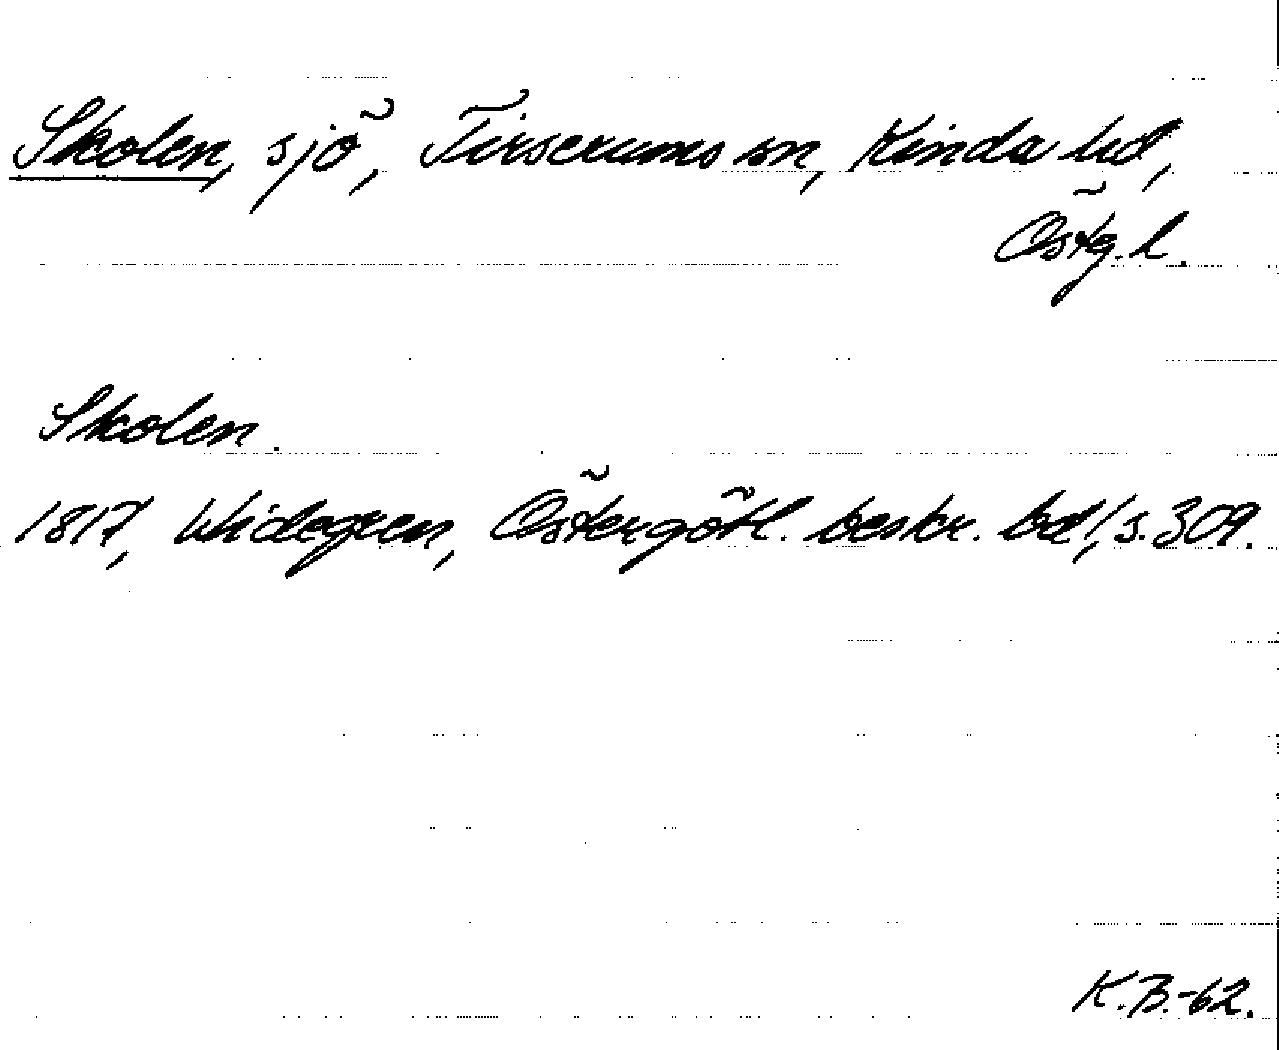 Skolen, sjö, Tirserums sn, Kinda hd,
Östg. l.
Skolen.
1817, Widegren, Östergötl. beskr. bd 1, s. 309.
K.B.-62.